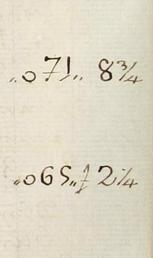 „071„ 8¾
„065„ 2¼